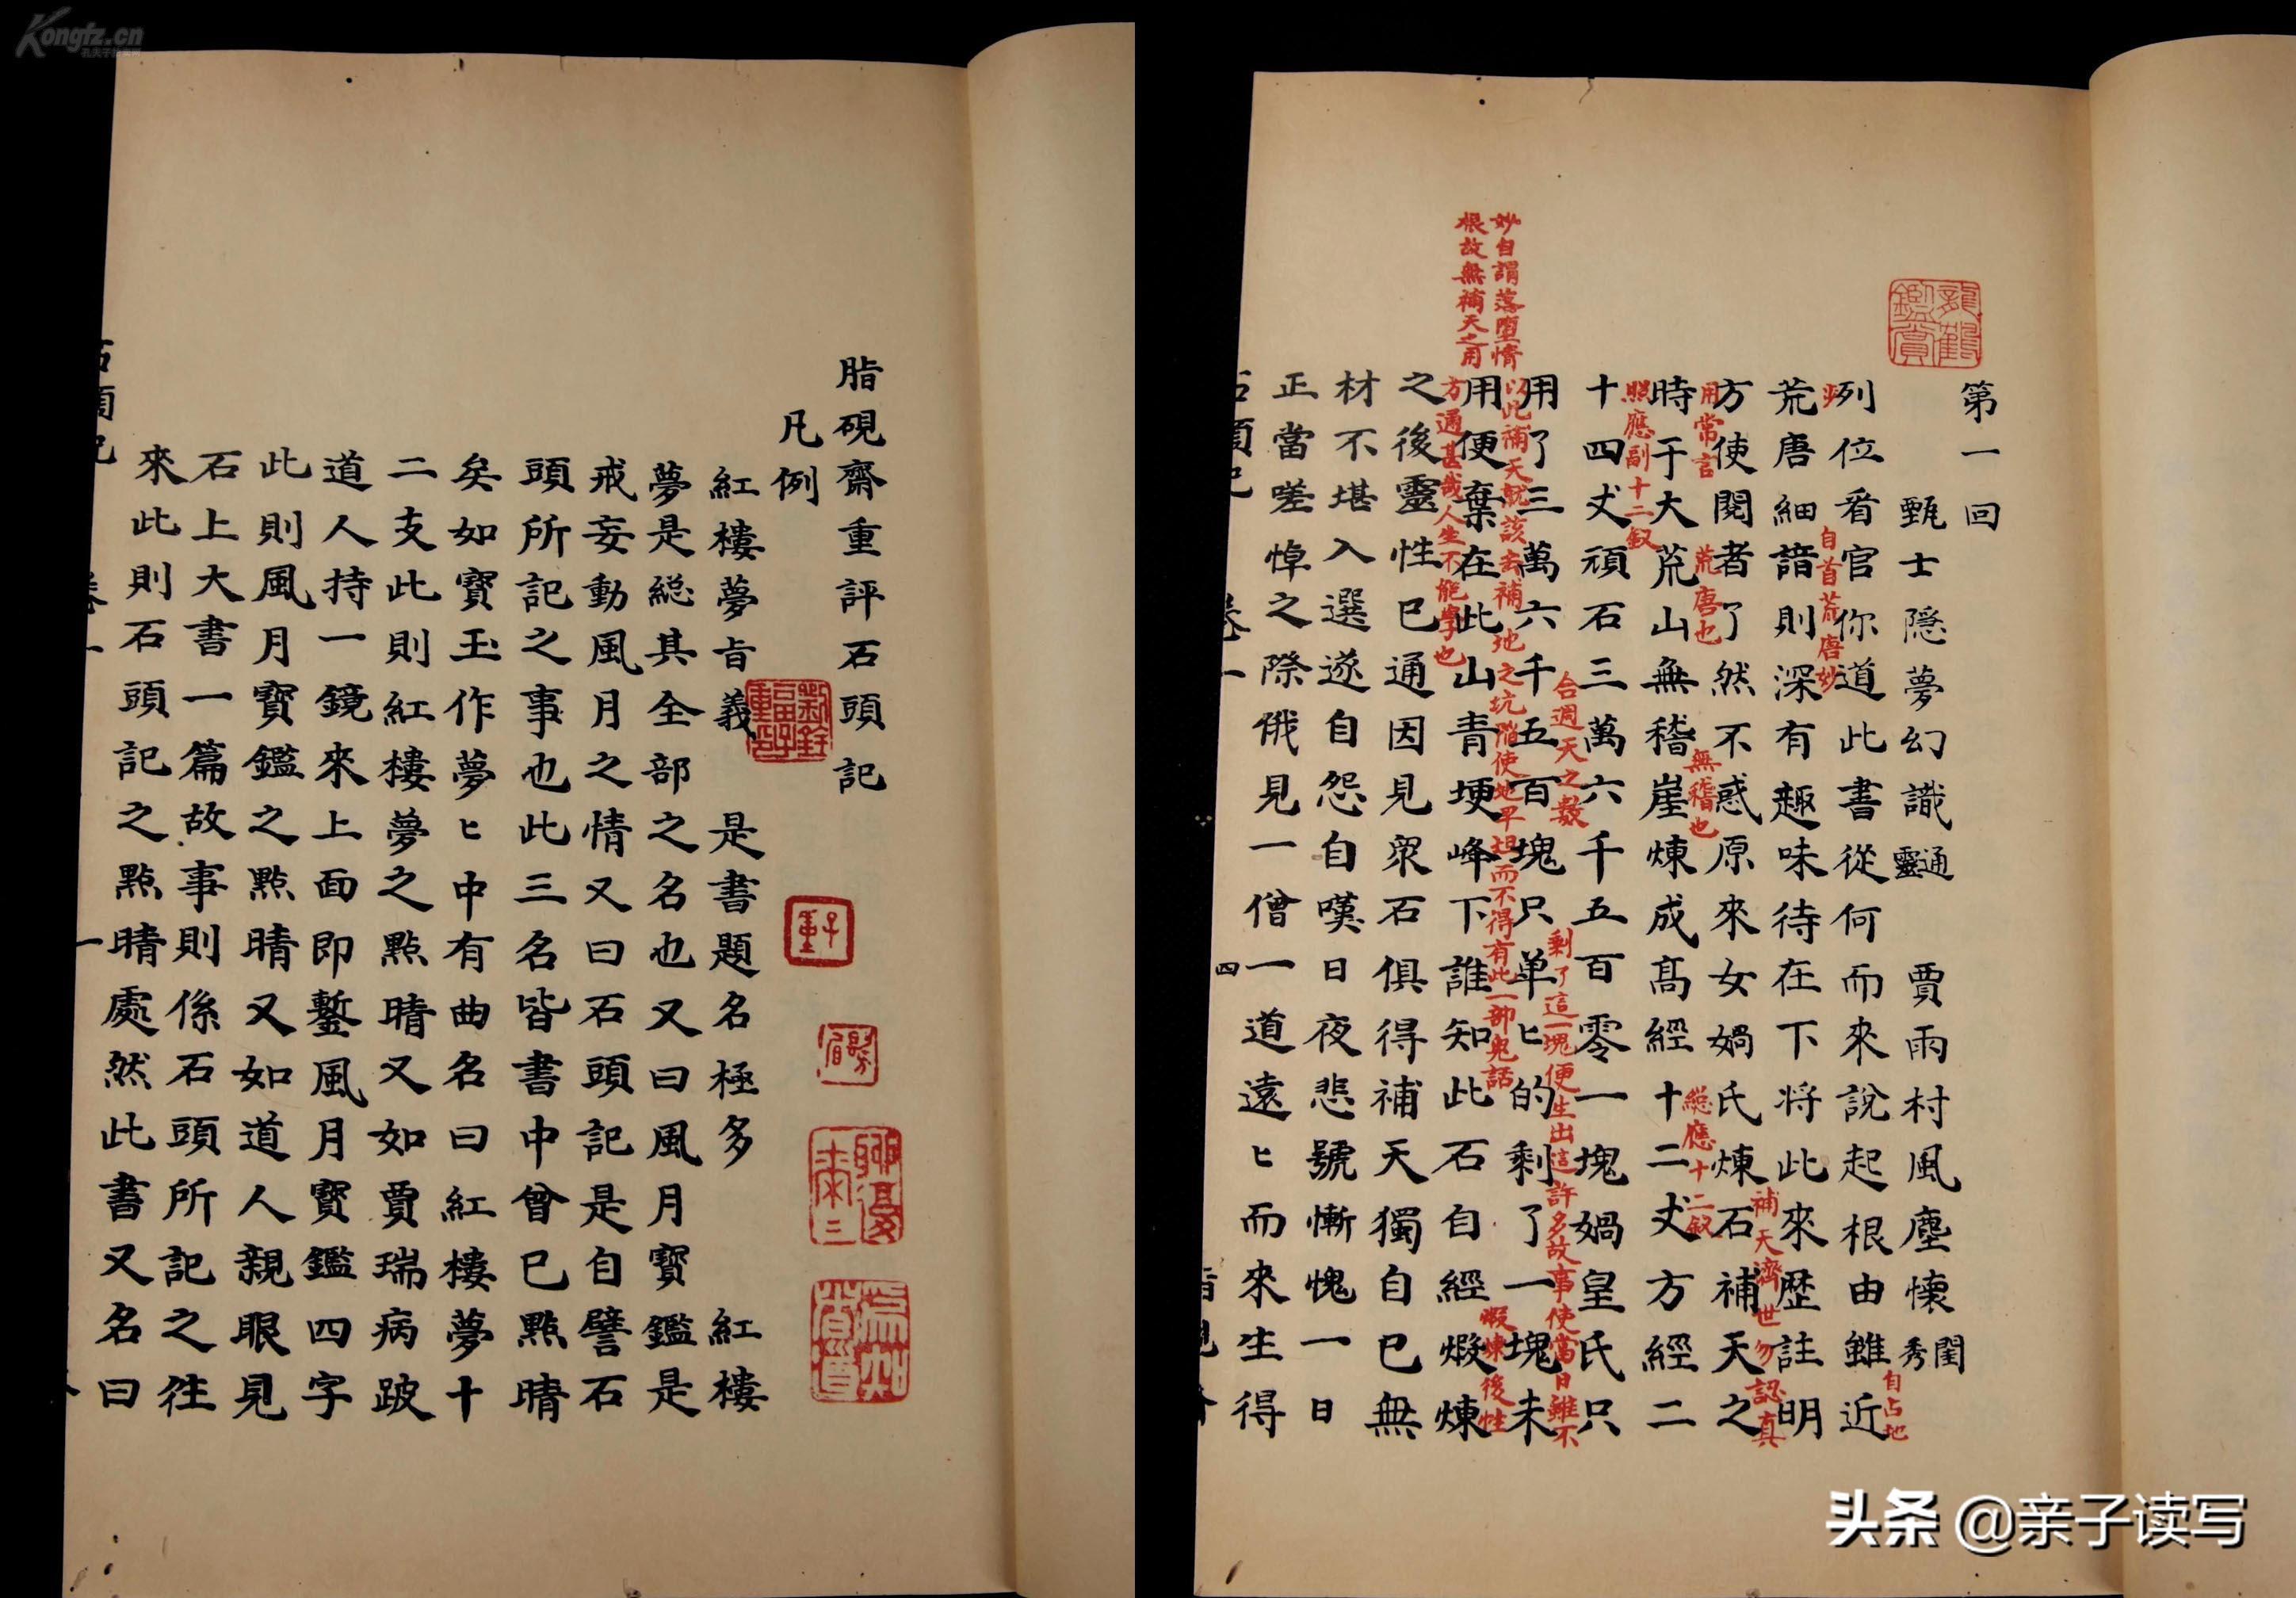 Kongfz.cn
脂硯齋重評石頭記
凡例
紅樓夢旨義 是書題名極多 紅樓
夢是総其全部之名也又曰風月寶鑑是
戒妄動風月之情又曰石頭記是自譬石
頭所記之事也此三名皆書中曾已點晴
矣如寳玉作夢ヒ中有曲名曰紅樓夢十
二支此則紅樓夢之點晴又如賈瑞病跛
道人持一鏡來上面即鏨風月寳鑑四字
此則風月寶鑑之點晴又如道人親眼見
石上大書一篇故事則係石頭所記之徃
來此則石頭記之點晴處然此書又名曰
妙自謂落堕情
根故無補天之用
龍鶴
鑑賞
第一回
甄士隱夢幻識通靈 賈雨村風塵懷閨秀
列位看官你道此書從何而來說起根由雖近
自占地
自首荒唐妙
荒唐細諳則深有趣味待在下將此來歷註明
方使閱者了然不惑原來女媧氏煉石補天之
補天濟世勿認真
用常言
時于大荒山無稽崖煉成高經十二丈方經二
荒唐也
無稽也
総應十二釵
照應副十二釵
十四丈頑石三萬六千五百零一塊媧皇氏只
合週天之數
用了三萬六千五百塊只单ヒ的剩了一塊未
剩了這一塊便生出這許多故事使當日雖不
以此補天就該去補地之坑陷使地平坦而不得有此一部鬼話
用便棄在此山青埂峰下誰知此石自經煆煉
煆煉後性
方通甚哉人生不能學也
之後靈性已通因見衆石俱得補天獨自己無
材不堪入選遂自怨自嘆日夜悲號慚愧一日
正當嗟悼之際俄見一僧一道遠ヒ而來生得
四
头条 @亲子读写